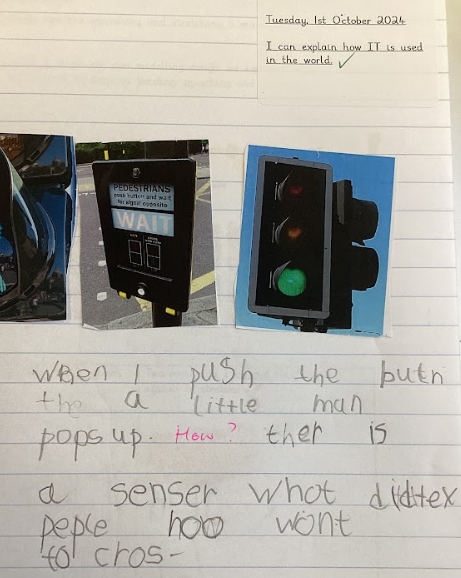 Tuesday, 1st October 2024
I can explain how IT is used
in the world.
PEDESTRIANS
push button and wait
for signal opposite
WAIT
When I push the butn
the a little man
pops up. How? ther is
a senser whot didtex
peple hoo wont
to cros-